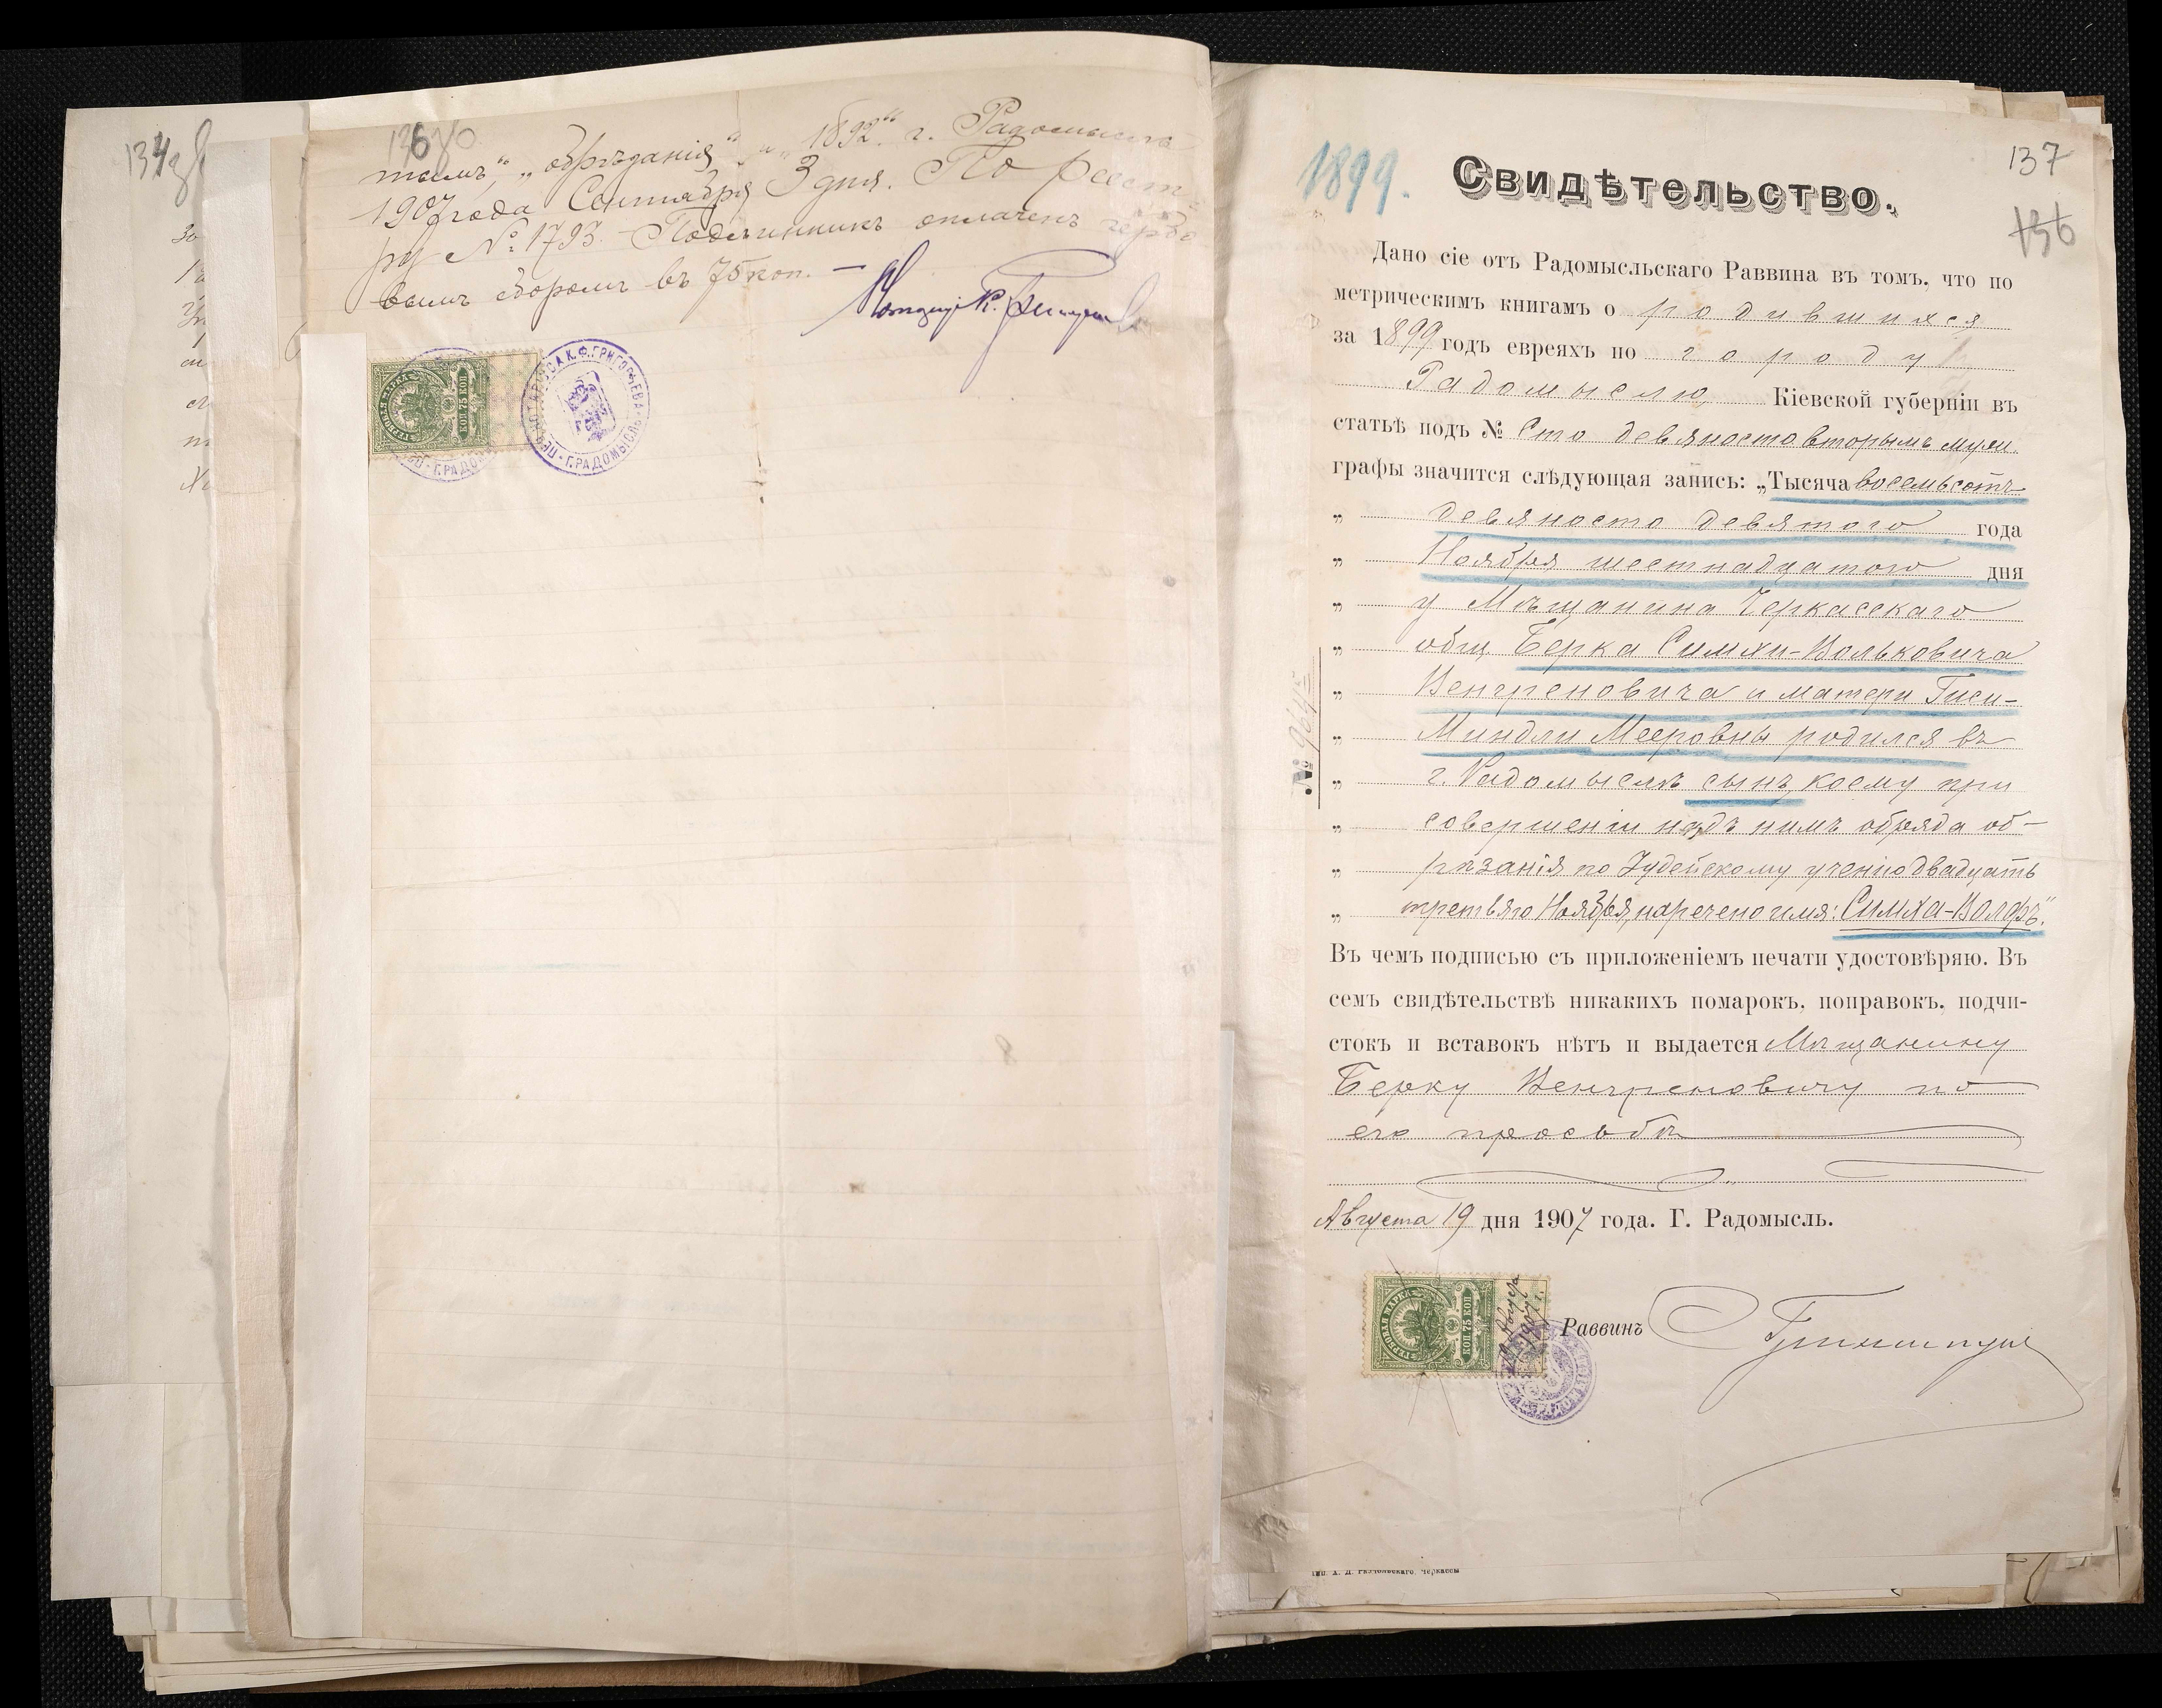 134
136
тымъ", "обрѣзанія" и "1892" г. Радомысль
1907 года Сентября 3 дня. По реест-
ру № 1793. Подлинникъ оплаченъ гербо
вымъ сборомъ въ 75 коп. —
Нотаріусъ К.
ГЕРБОВАЯ МАРКА
75 КОП
НОТАРІУСА К.Ф. ГРИГОРЬЕВА
Г. РАДОМЫСЛЬ
1899.
137
136
Свидѣтельство.
Дано сіе отъ Радомысльскаго Раввина въ томъ, что по
метрическимъ книгамъ о родившихся
за 1899 годъ евреяхъ по городу
Радомыслю Кіевской губерніи въ
статьѣ подъ № Сто девяносто вторымъ муж.
графы значится слѣдующая запись: „Тысяча восемьсотъ
„ девяносто девятого года
„ Ноября шестнадцатого дня
„ у Мѣщанина Черкасскаго
„ общ. Берка Симхи-Вольковича
„ Венгреновича и матери Гиси-
„ Миндли Мееровны родился въ
„ г. Радомыслѣ сынъ, коему при
„ совершеніи надъ нимъ обряда об-
„ рѣзанія по Іудейскому ученію двадцать
„ третьяго Ноября, наречено имя: Симха-Волфъ".
№ 964
Въ чемъ подписью съ приложеніемъ печати удостовѣряю. Въ
семъ свидѣтельствѣ никакихъ помарокъ, поправокъ, подчи-
стокъ и вставокъ нѣтъ и выдается Мѣщанину
Берку Венгреновичу по
его просьбѣ
Августа 19 дня 1907 года. Г. Радомысль.
ГЕРБОВАЯ МАРКА
75 КОП
19 Августа
1907 г.
Раввинъ
Черкассы